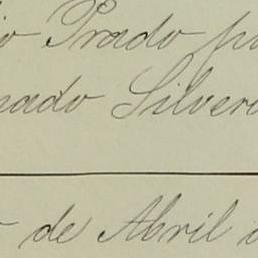 io Prado p
nado Silver
de Abril